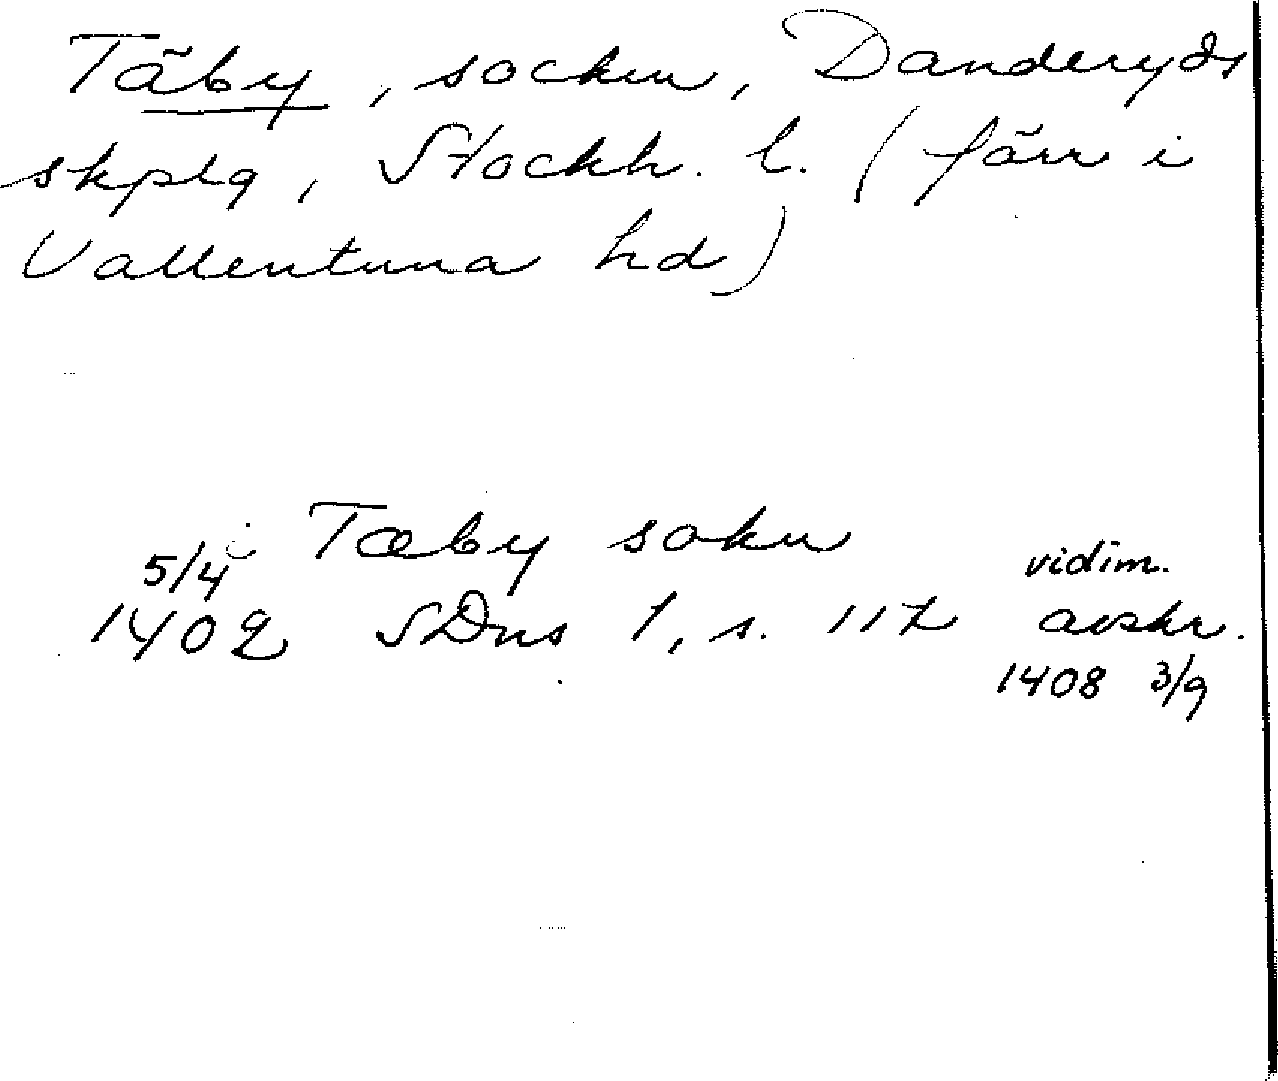 Täby, socken, Danderyds
skplg, Stockh. l. (förr i
Vallentuna hd)
i Tæby sokn
5/4 vidim.
1402 SDns 1, s. 117 avskr.
1408 3/9